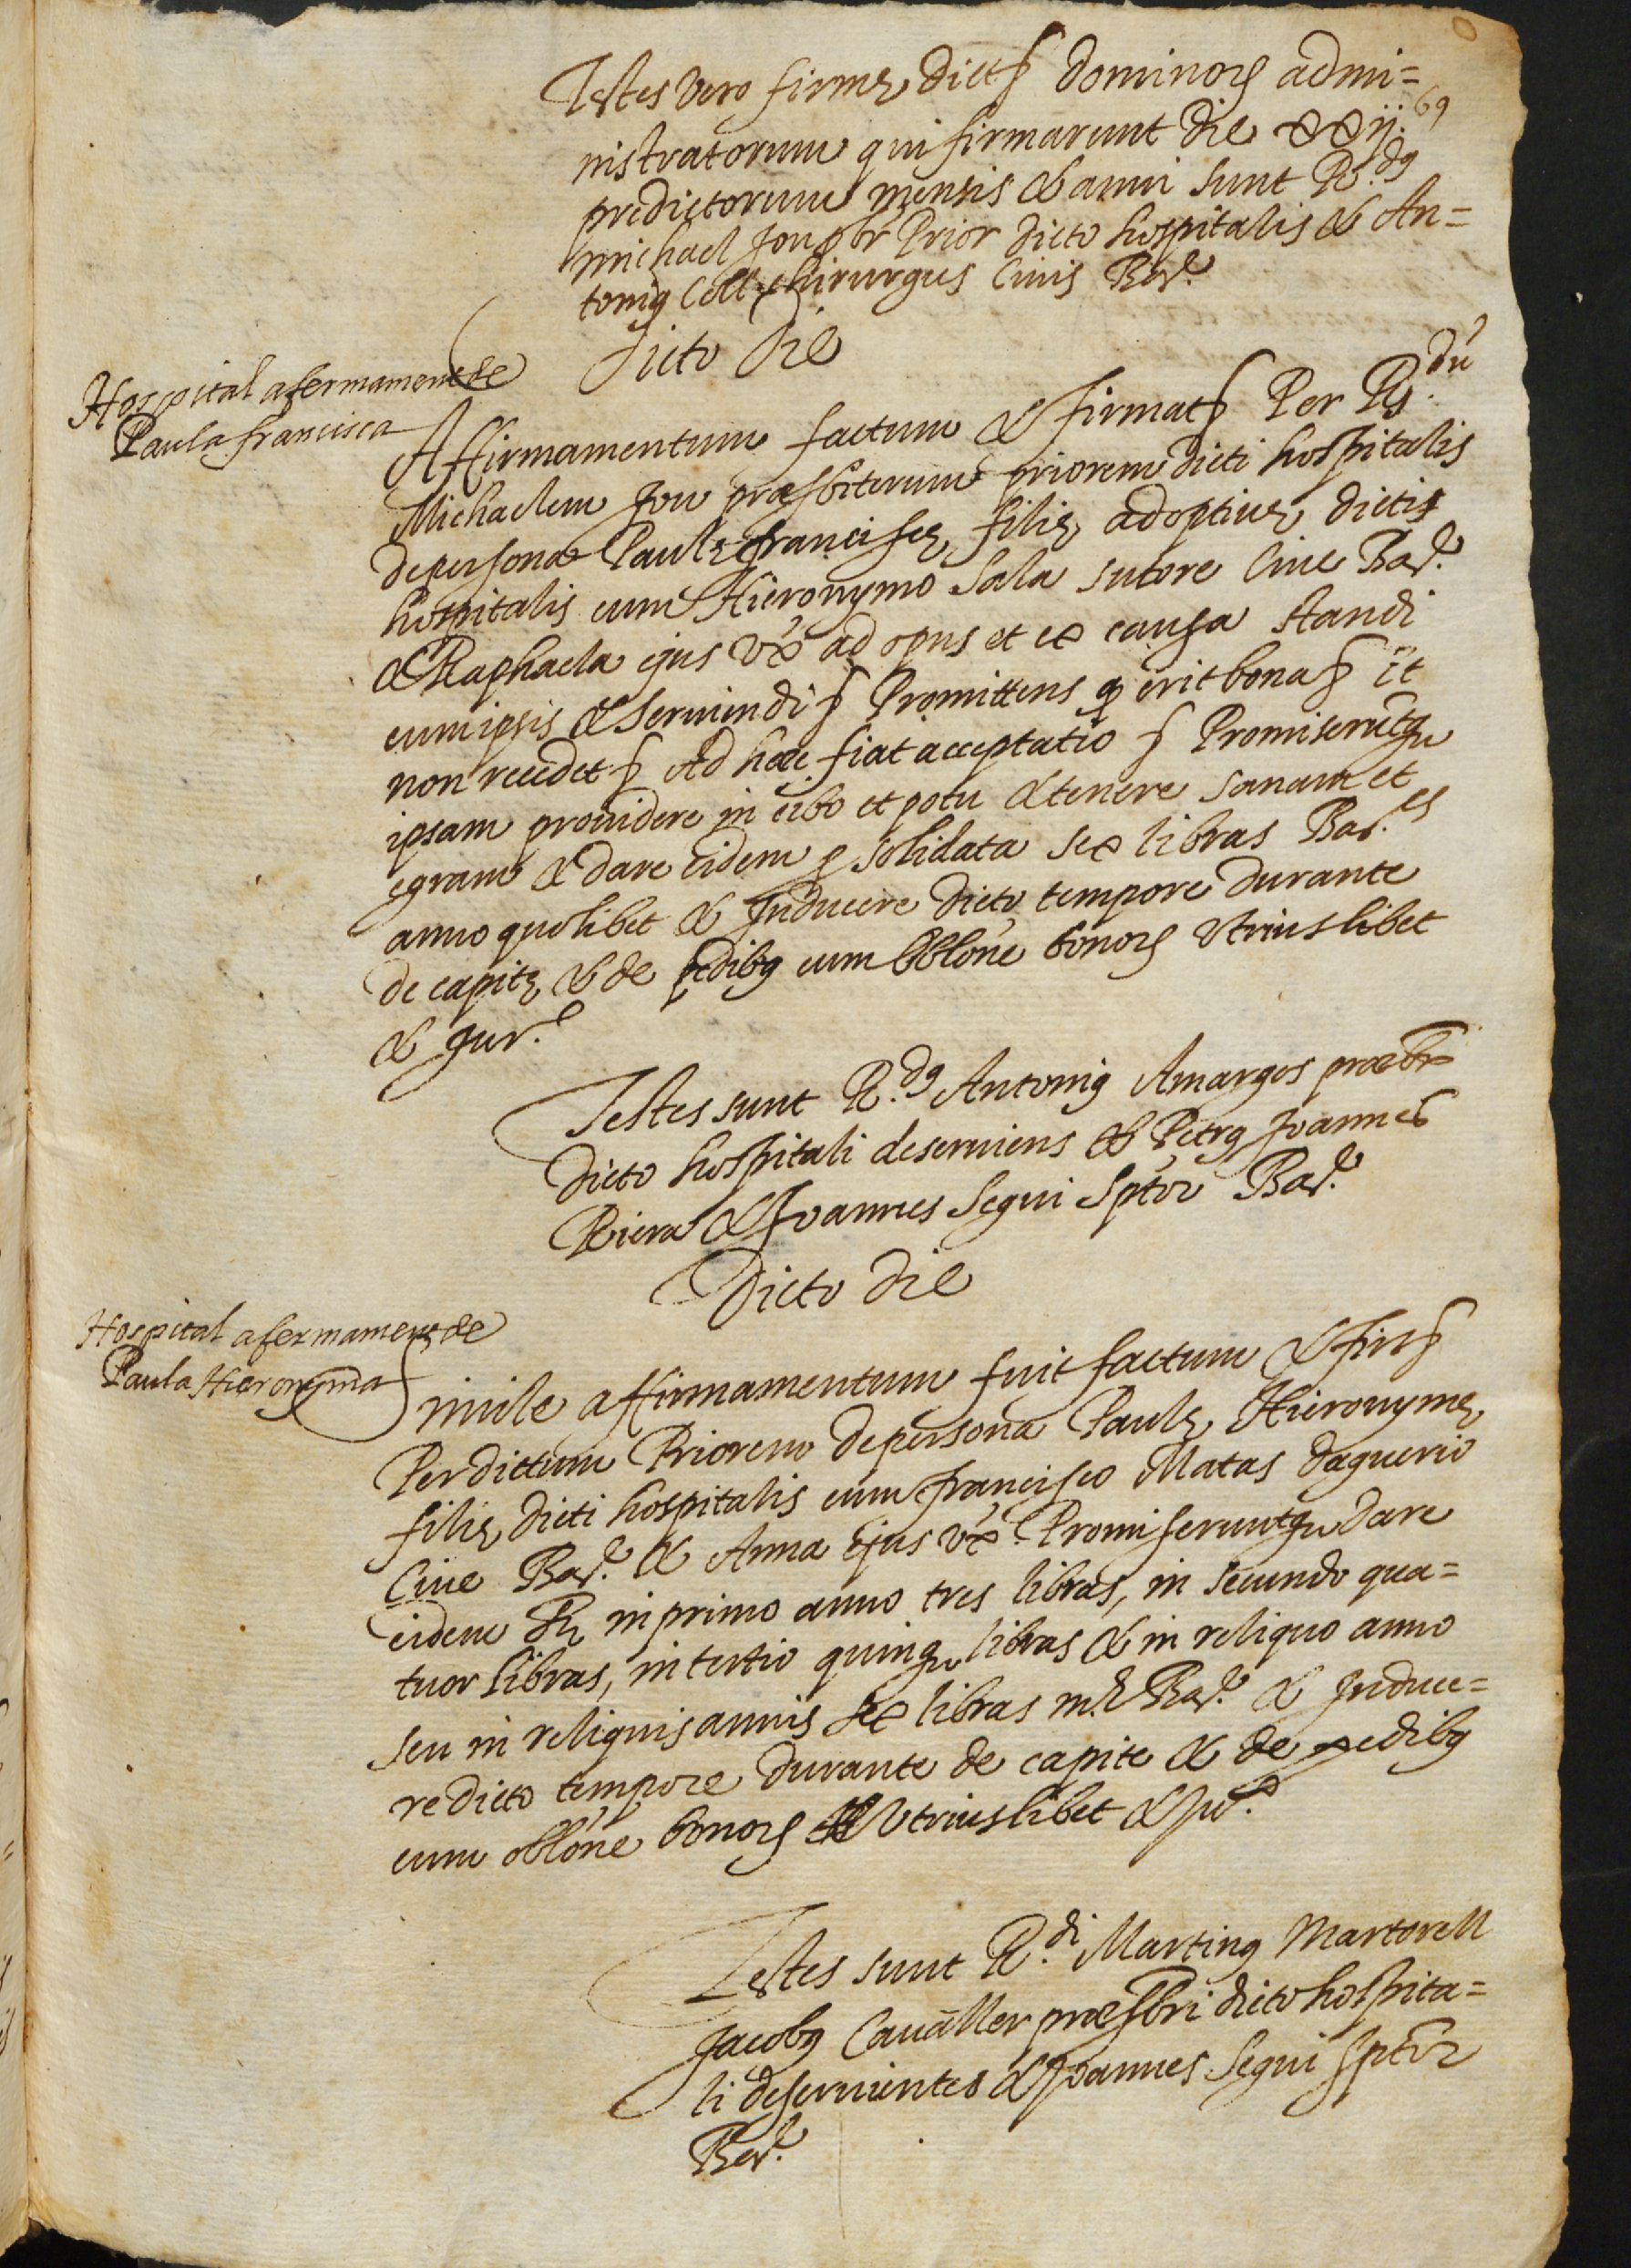 Testes vero firmę dict§ dominoꝝ admi=
69
nistratorum qui firmarunt die xxij.
predictorum mensis & anni sunt R.dꝰ
michael Jou pbr Prior dicto hospitalis & An=
toniꝰ Coll chirurgus Civis Bar.e
Dicto die
Hospital afermament de
Paula francisca
Affirmamentum factum & firmat§ Per R.dũ
Michaelem Jou præsbiterum priorem dicti hospitalis
de persona Paulę francisę filię adoptivę dictis
hospitalis cum Hieronymo Sala sutore Cive Bar.e
& Raphaela ejus vx̃ ad opus et ex causa standi
cum ipsis & serviendi § Promittens ꝙ erit bona § Et
non recedet § Ad hæc fiat acceptatio § Promiserũtqꝫ
ipsam providere in cibo et potu & tenere sanam et
egram & dare eidem ꝑ solidata sex libras Bar.es
anno quolibet & Inducere dicto tempore durante
de capitę & de pedibꝰ cum obłõne bonoꝝ Utriuslibet
& Jur.e
Testes sunt R.dꝰ Antoniꝰ Amargos præbr
dicto hospitali deserviens & Petrꝰ Joannes
Riera & Joannes Segui Sptor Bar.e
Dicto die
Hospital afermament de
Paula Hieronyma
Simile affirmamentum fuit factum & firt§
Per dictum Priorem de persona Paulę Hieronymę
filię dicti hospitalis cum francisco Matas daguerio
Cive Bar.e & Anna ejus vx̃. Promiseruntqꝫ dare
eidem in primo anno tres libras, in secundo qua=
tuor libras, in tertio quinqꝫ libras & in reliquo anno
seu in reliquis annis sex libras m.e Bar.e & Induce=
re dicto tempore durante de capite & de pedibꝰ
cum obłõne bonoꝝ Utriuslibet & Jur.e
Testes sunt R.di Martinꝰ Martorell
Jacobꝰ Cavaller præsbri dicto hospita=
li deservientes & Joannes Segui Sptor
Bar.e